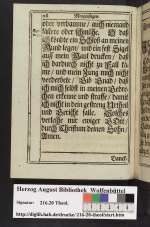 oder verdamme / auch niemand
lästere oder schmähe. O daß
ich könte ein Schloß an meinen
Mund legen / und ein fest Sigel
auf mein Maul drucken / daß
ich dardurch nicht zu Fall kä-
me / und mein Zung mich nicht
verderbete / Gib Gnad / daß
ich mich selbst in meinen Gebre-
chen erkenne und straffe / damit
ich nicht in dein gestreng Urtheil
und Gericht falle. Welches
verleihe mir ewiger Gott /
durch Christum deinen Sohn /
Amen.
Danck-
Herzog August Bibliothek Wolfenbüttel
Signatur: 216.20 Theol.
http://diglib.hab.de/drucke/216-20-theol/start.htm